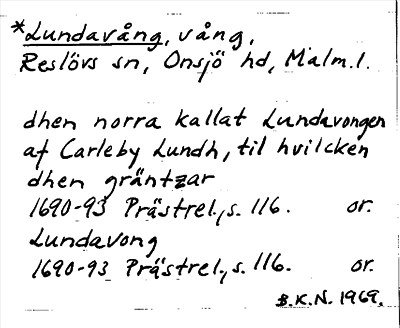 *Lundavång, vång,
Reslövs sn, Onsjö hd, Malm.l.
dhen norra kallat Lundavongen
af Carleby Lundh, til hvilcken
dhen gräntzar
1690-93 Prästrel., s. 116. or.
Lundavong
1690-93 Prästrel., s. 116. or.
B.K.N. 1969.